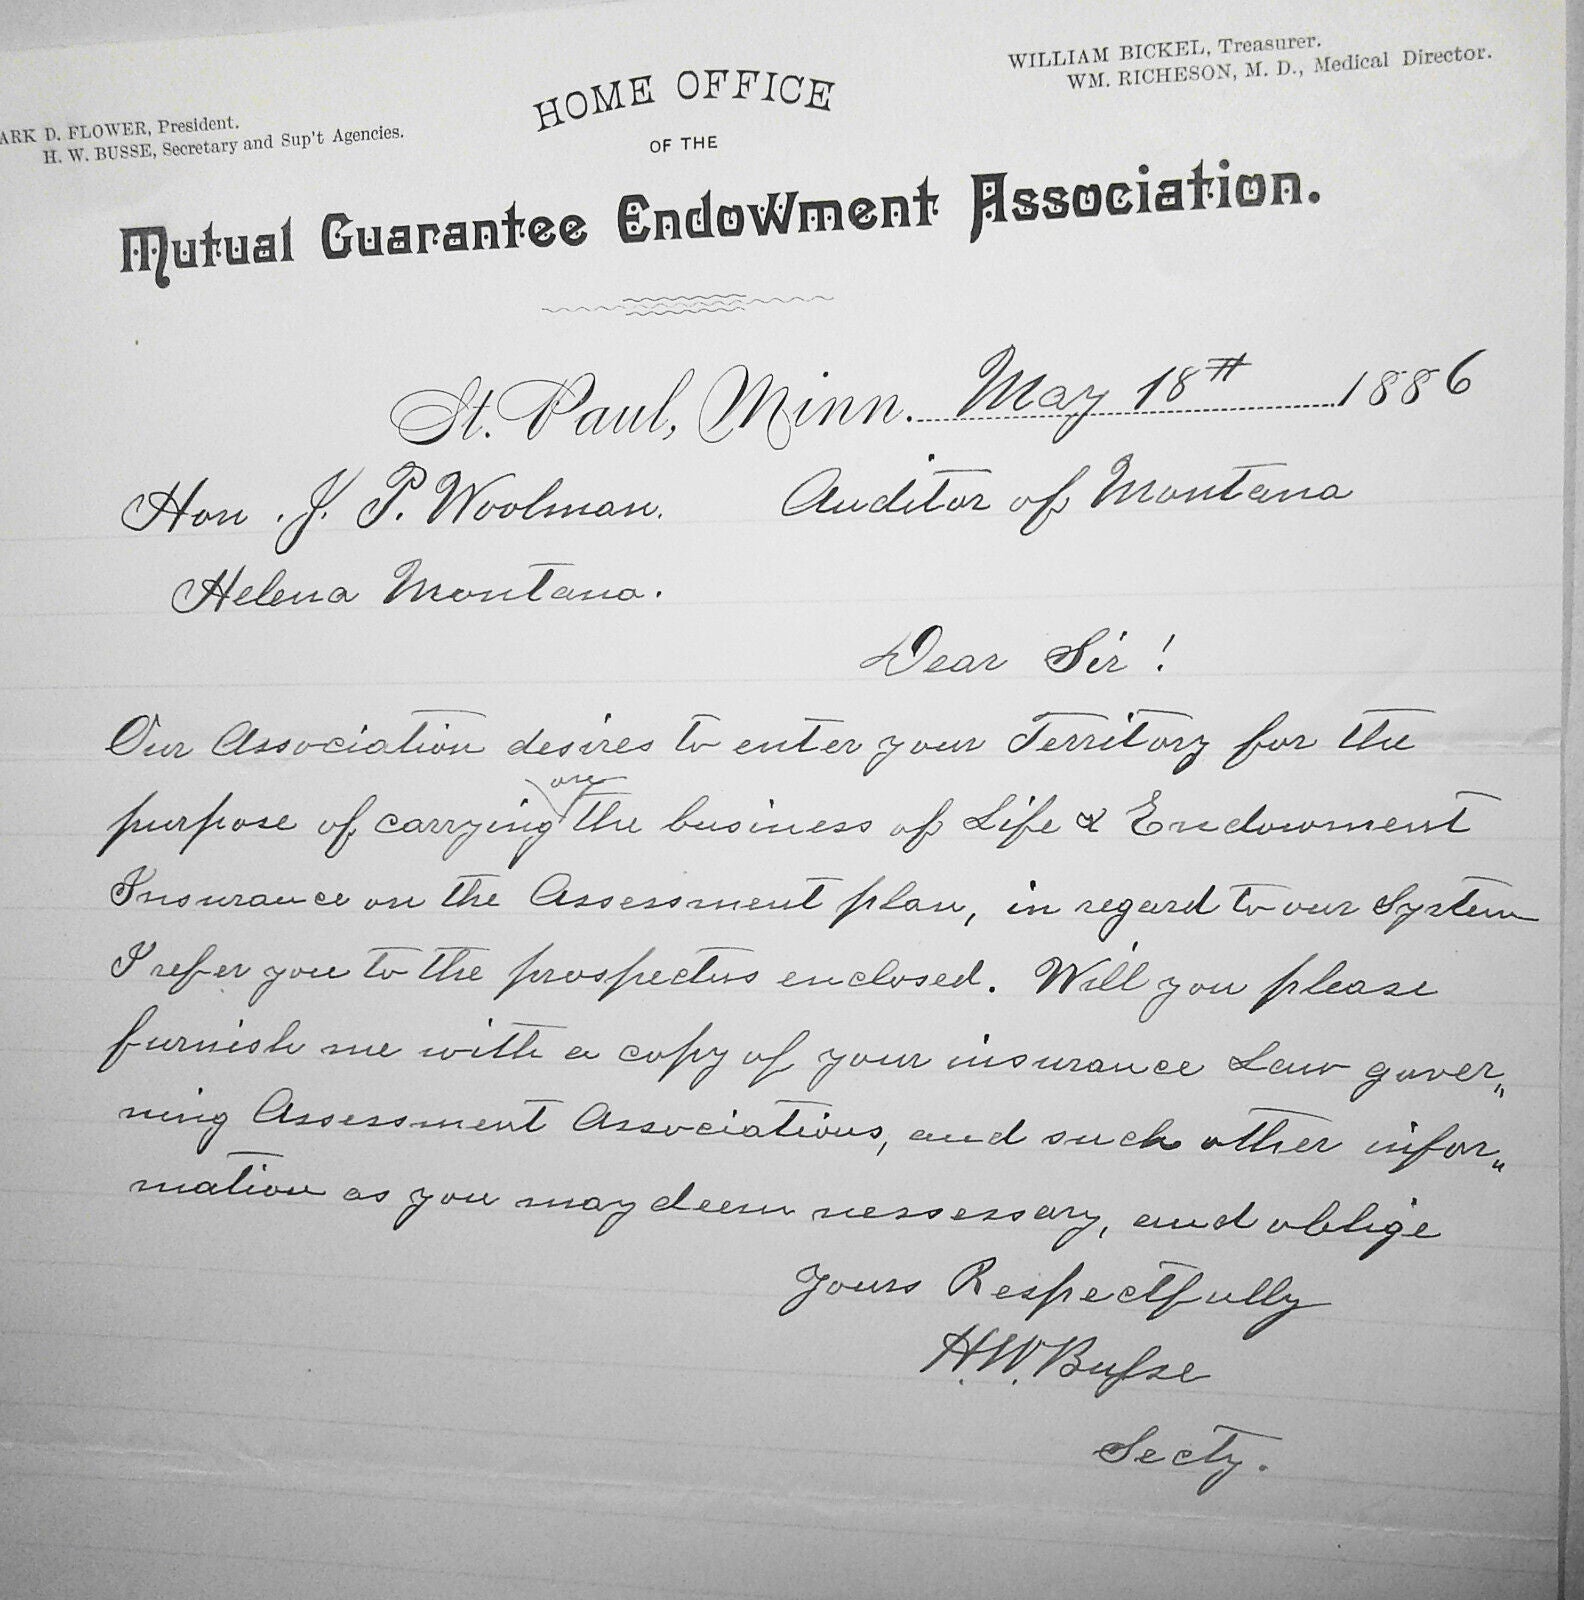 WILLIAM BICKEL, Treasurer.
WM. RICHESON, M. D., Medical Director.
ARK D. FLOWER, President.
H. W. BUSSE, Secretary and Sup't Agencies.
HOME OFFICE
OF THE
Mutual Guarantee Endowment Association.
St. Paul, Minn. May 18th 1886
Hon. J. P. Woolman. Auditor of Montana
Helena Montana.
Dear Sir!
Our Association desires to enter your Territory for the
purpose of carrying on the business of Life & Endowment
Insurance on the Assessment plan, in regard to our System
I refer you to the prospectus enclosed. Will you please
furnish me with a copy of your insurance Law gover„
ning Assessment Associations, and such other infor„
mation as you may deem nessessary, and oblige
Yours Respectfully
H. W. Busse
Secty.